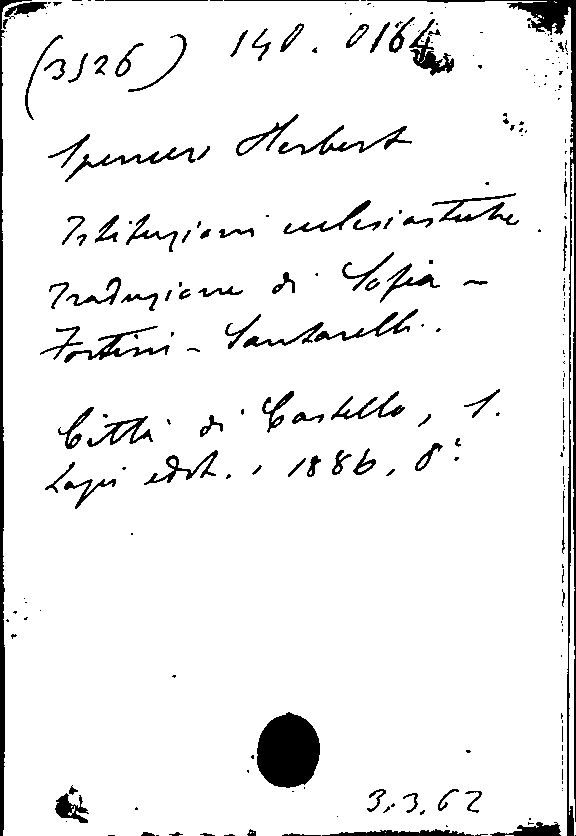 (3526) 140. 0164
Spencer Herbert
Istituzioni ecclesiastiche
Traduzione di Sofia -
Fortini - Santarelli.
Città di Castello, S.
Lapi edit., 1886, 8°
3.3.62